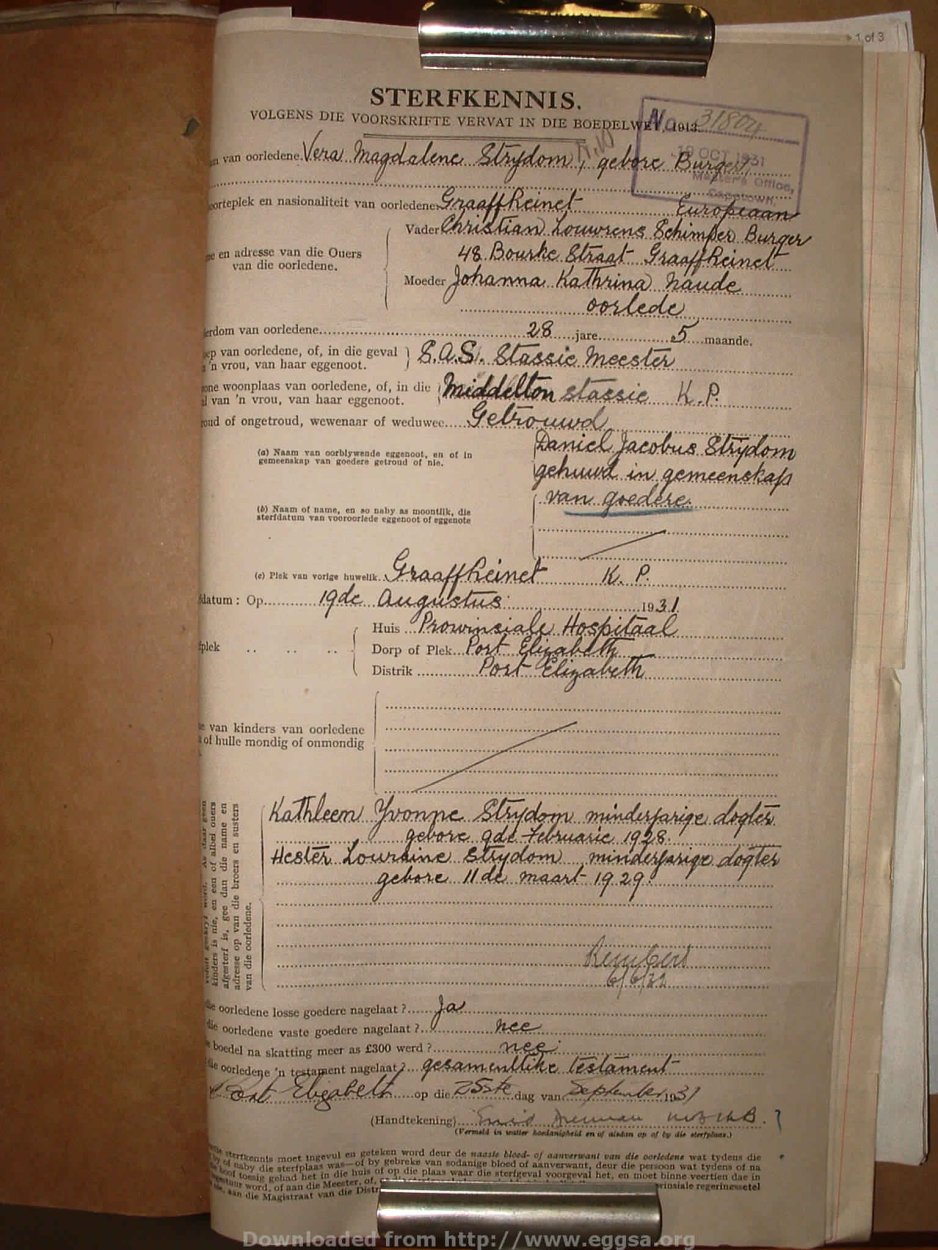 1 of 3
STERFKENNIS.
VOLGENS DIE VOORSKRIFTE VERVAT IN DIE BOEDELWET 1913.
No. 31804
19 OCT 1931
Master's Office,
Capetown
van oorledene. Vera Magdalene Strydom, gebore Burger
oorteplek en nasionaliteit van oorledene Graaff Reinet Europeaan
Vader Christian Louwrens Schimper Burger
en adresse van die Ouers 48 Bourke Straat Graaff Reinet
van die oorledene.
Moeder Johanna Kathrina Naude
oorlede
erdom van oorledene 28 jare 5 maande.
ep van oorledene, of, in die geval S.A.S. Stassie Meester
'n vrou, van haar eggenoot.
one woonplaas van oorledene, of, in die Middelton stassie K.P.
al van 'n vrou, van haar eggenoot.
roud of ongetroud, wewenaar of weduwee Getrouwd
(a) Naam van oorblywende eggenoot, en of in Daniel Jacobus Strydom
gemeenskap van goedere getroud of nie. gehuwd in gemeenskap
van goedere.
(b) Naam of name, en so naby as moontlik, die
sterfdatum van vooroorlede eggenoot of eggenote
(c) Plek van vorige huwelik. Graaff Reinet K. P.
datum : Op 19de Augustus 1931
Huis Prowinsiale Hospitaal
plek Dorp of Plek Port Elizabeth
Distrik Port Elizabeth
van kinders van oorledene
of hulle mondig of onmondig
kinders is nie, en een of albei ouers
afgesterf is, gee dan die name en
adresse op van die broers en susters
van die oorledene.
Kathleen Yvonne Strydom minderjarige dogter
gebore 9de Februarie 1928
Hester Louraine Strydom minderjarige dogter
gebore 11de Maart 1929.
die oorledene losse goedere nagelaat ? Ja
die oorledene vaste goedere nagelaat ? nee
boedel na skatting meer as £300 werd ? nee
die oorledene 'n testament nagelaat ? gesamentlike testament
Port Elizabeth op die 25ste dag van September 1931
(Handtekening)
(Vermeld in watter hoedanigheid en of aldan op of by die sterfplaas.)
sterfkennis moet ingevul en geteken word deur die naaste bloed- of aanverwant van die oorledene wat tydens die
of naby die sterfplaas was—of by gebreke van sodanige bloed of aanverwant, deur die persoon wat tydens of na
hoof toesig gehad het in die huis of op die plaas waar die sterfgeval voorgeval het, en moet binne veertien dae in
word, of aan die Meester, of, provinsiale regeringssetel
aan die Magistraat van die Distr
Downloaded from http://www.eggsa.org